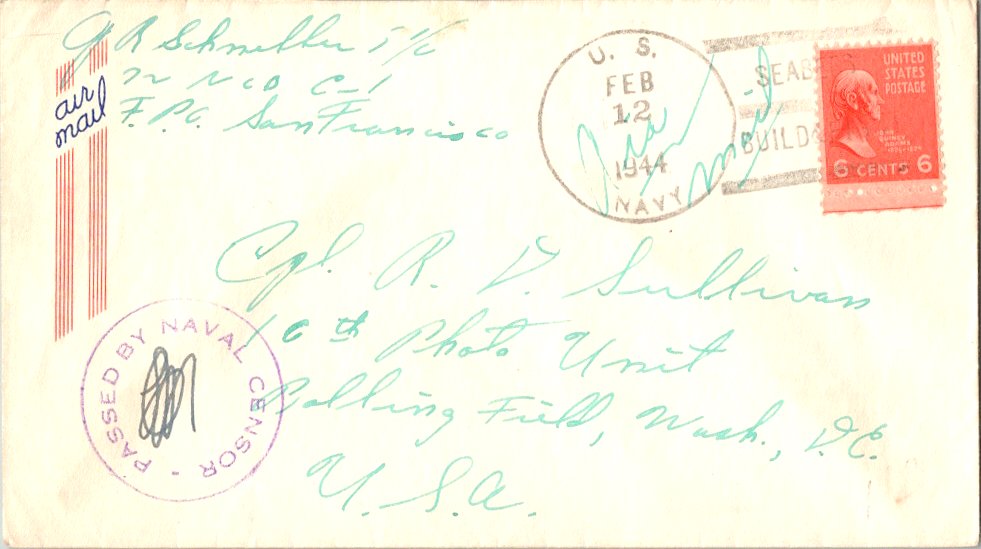 G R Schneller 
N C B C-1
F.P.O. San Francisco
air
mail
U. S.
FEB
12
1944
NAVY
SEAB
BUILD
Via
Air
Mail
UNITED
STATES
POSTAGE
JOHN
QUINCY
ADAMS
6 CENTS 6
Cpl. R. V. Sullivan
10th Photo Unit
Bolling Field, Wash., D.C.
U.S.A.
PASSED BY NAVAL CENSOR